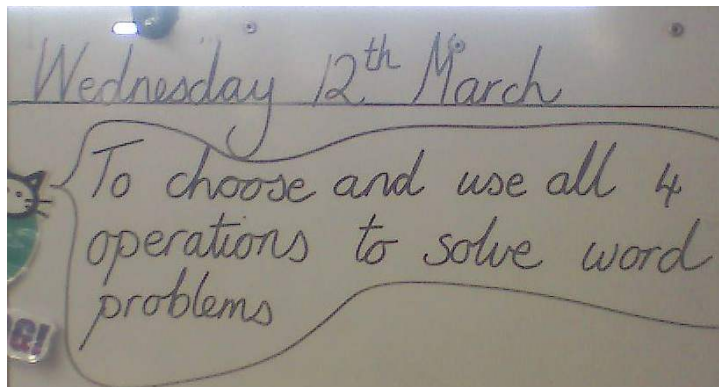 Wednesday 12th March
To choose and use all 4
operations to solve word
problems
G!